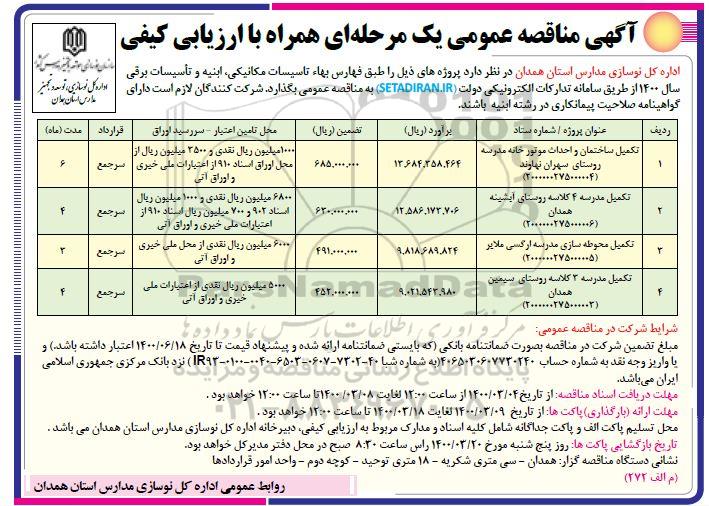 آگهی مناقصه عمومی یک مرحله‌ای همراه با ارزیابی کیفی
اداره کل نوسازی، توسعه و تجهیز
مدارس استان همدان
اداره کل نوسازی مدارس استان همدان در نظر دارد پروژه های ذیل را طبق فهارس بهاء تاسیسات مکانیکی، ابنیه و تأسیسات برقی
سال ۱۴۰۰ از طریق سامانه تدارکات الکترونیکی دولت (SETADIRAN.IR) به مناقصه عمومی بگذارد. شرکت کنندگان لازم است دارای
گواهینامه صلاحیت پیمانکاری در رشته ابنیه باشند.
ردیف عنوان پروژه / شماره ستاد برآورد (ریال) تضمین (ریال) محل تامین اعتبار - سررسید اوراق قرارداد مدت (ماه)
۱ تکمیل ساختمان و احداث موتور خانه مدرسه روستای سهران نهاوند (۲۰۰۰۰۰۰۲۷۵۰۰۰۰۰۴) ۱۳,۶۸۴,۳۵۸,۴۶۴ ۶۸۵,۰۰۰,۰۰۰ ۱۰۰۰میلیون ریال نقدی و ۳۵۰۰ میلیون ریال از محل اوراق اسناد ۹۱۰ از اعتبارات ملی خیری و اوراق آتی سرجمع ۶
۲ تکمیل مدرسه ۴ کلاسه روستای آبشینه همدان (۲۰۰۰۰۰۰۲۷۵۰۰۰۰۰۶) ۱۲,۵۸۶,۱۷۳,۷۰۶ ۶۳۰,۰۰۰,۰۰۰ ۶۸۰۰ میلیون ریال نقدی و ۱۰۰۰ میلیون ریال اسناد ۹۰۲ و ۷۰۰ میلیون ریال اسناد ۹۱۰ از اعتبارات ملی خیری و اوراق آتی سرجمع ۴
۳ تکمیل محوطه سازی مدرسه ارگسی ملایر (۲۰۰۰۰۰۰۲۷۵۰۰۰۰۰۵) ۹,۸۱۸,۶۸۹,۸۲۴ ۴۹۱,۰۰۰,۰۰۰ ۶۰۰۰ میلیون ریال نقدی از محل ملی خیری و اوراق آتی سرجمع ۳
۴ تکمیل مدرسه ۳ کلاسه روستای سیمین همدان (۲۰۰۰۰۰۰۲۷۵۰۰۰۰۰۳) ۹,۰۲۱,۵۴۳,۹۸۰ ۴۵۲,۰۰۰,۰۰۰ ۵۰۰۰ میلیون ریال نقدی از اعتبارات ملی خیری و اوراق آتی سرجمع ۴
شرایط شرکت در مناقصه عمومی:
مبلغ تضمین شرکت در مناقصه بصورت ضمانتنامه بانکی (که بایستی ضمانتنامه ارائه شده و پیشنهاد قیمت تا تاریخ ۱۴۰۰/۰۶/۱۸ اعتبار داشته باشد.) و
یا واریز وجه نقد به شماره حساب ۴۰۶۵۰۳۰۶۰۷۷۳۰۲۴۰(به شماره شبا ۴۰-۷۳۰۲-۰۶۰۷-۶۵۰۳-۰۰۴۰-۰۱۰۰-IR۹۳ ) نزد بانک مرکزی جمهوری اسلامی
ایران می‌باشد.
مهلت دریافت اسناد مناقصه: از تاریخ۱۴۰۰/۰۳/۰۴ از ساعت ۱۲:۰۰ لغایت ۱۴۰۰/۰۳/۰۸تا ساعت ۱۲:۰۰ خواهد بود .
مهلت ارائه (بارگذاری) پاکت ها: از تاریخ ۱۴۰۰/۰۳/۰۹ لغایت ۱۴۰۰/۰۳/۱۸ تا ساعت ۱۲:۰۰ خواهد بود .
محل تسلیم پاکت الف و پاکت جداگانه شامل کلیه اسناد و مدارک مربوط به ارزیابی کیفی، دبیرخانه اداره کل نوسازی مدارس استان همدان می باشد .
تاریخ بازگشایی پاکت ها: روز پنج شنبه مورخ ۱۴۰۰/۰۳/۲۰ راس ساعت ۸:۳۰ صبح در محل دفتر مدیرکل خواهد بود.
نشانی دستگاه مناقصه گزار: همدان - سی متری شکریه - ۱۸ متری توحید - کوچه دوم - واحد امور قراردادها
(م الف ۲۷۲)
روابط عمومی اداره کل نوسازی مدارس استان همدان